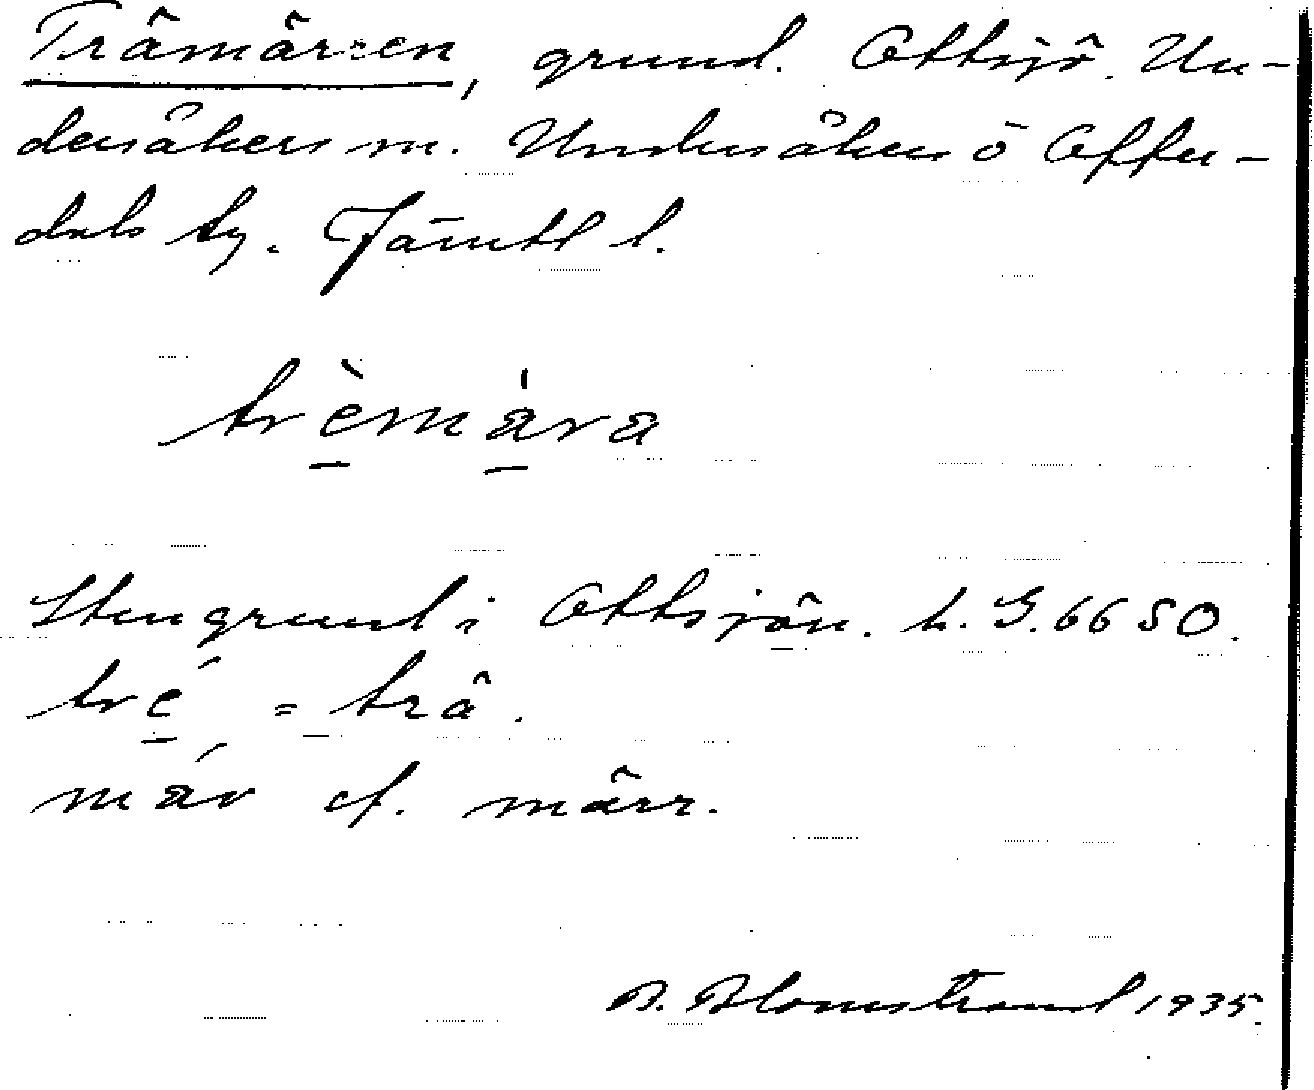 Trämärren, grund. Ottsjö. Un-
dersåkers sn. Undersåkers o Offer-
dals tg. Jämtl l.
trèmǻra
Stengrund i Ottsjön. h. G. 6650.
tré = trä.
mār cf. märr.
B. Blomstrand 1935.